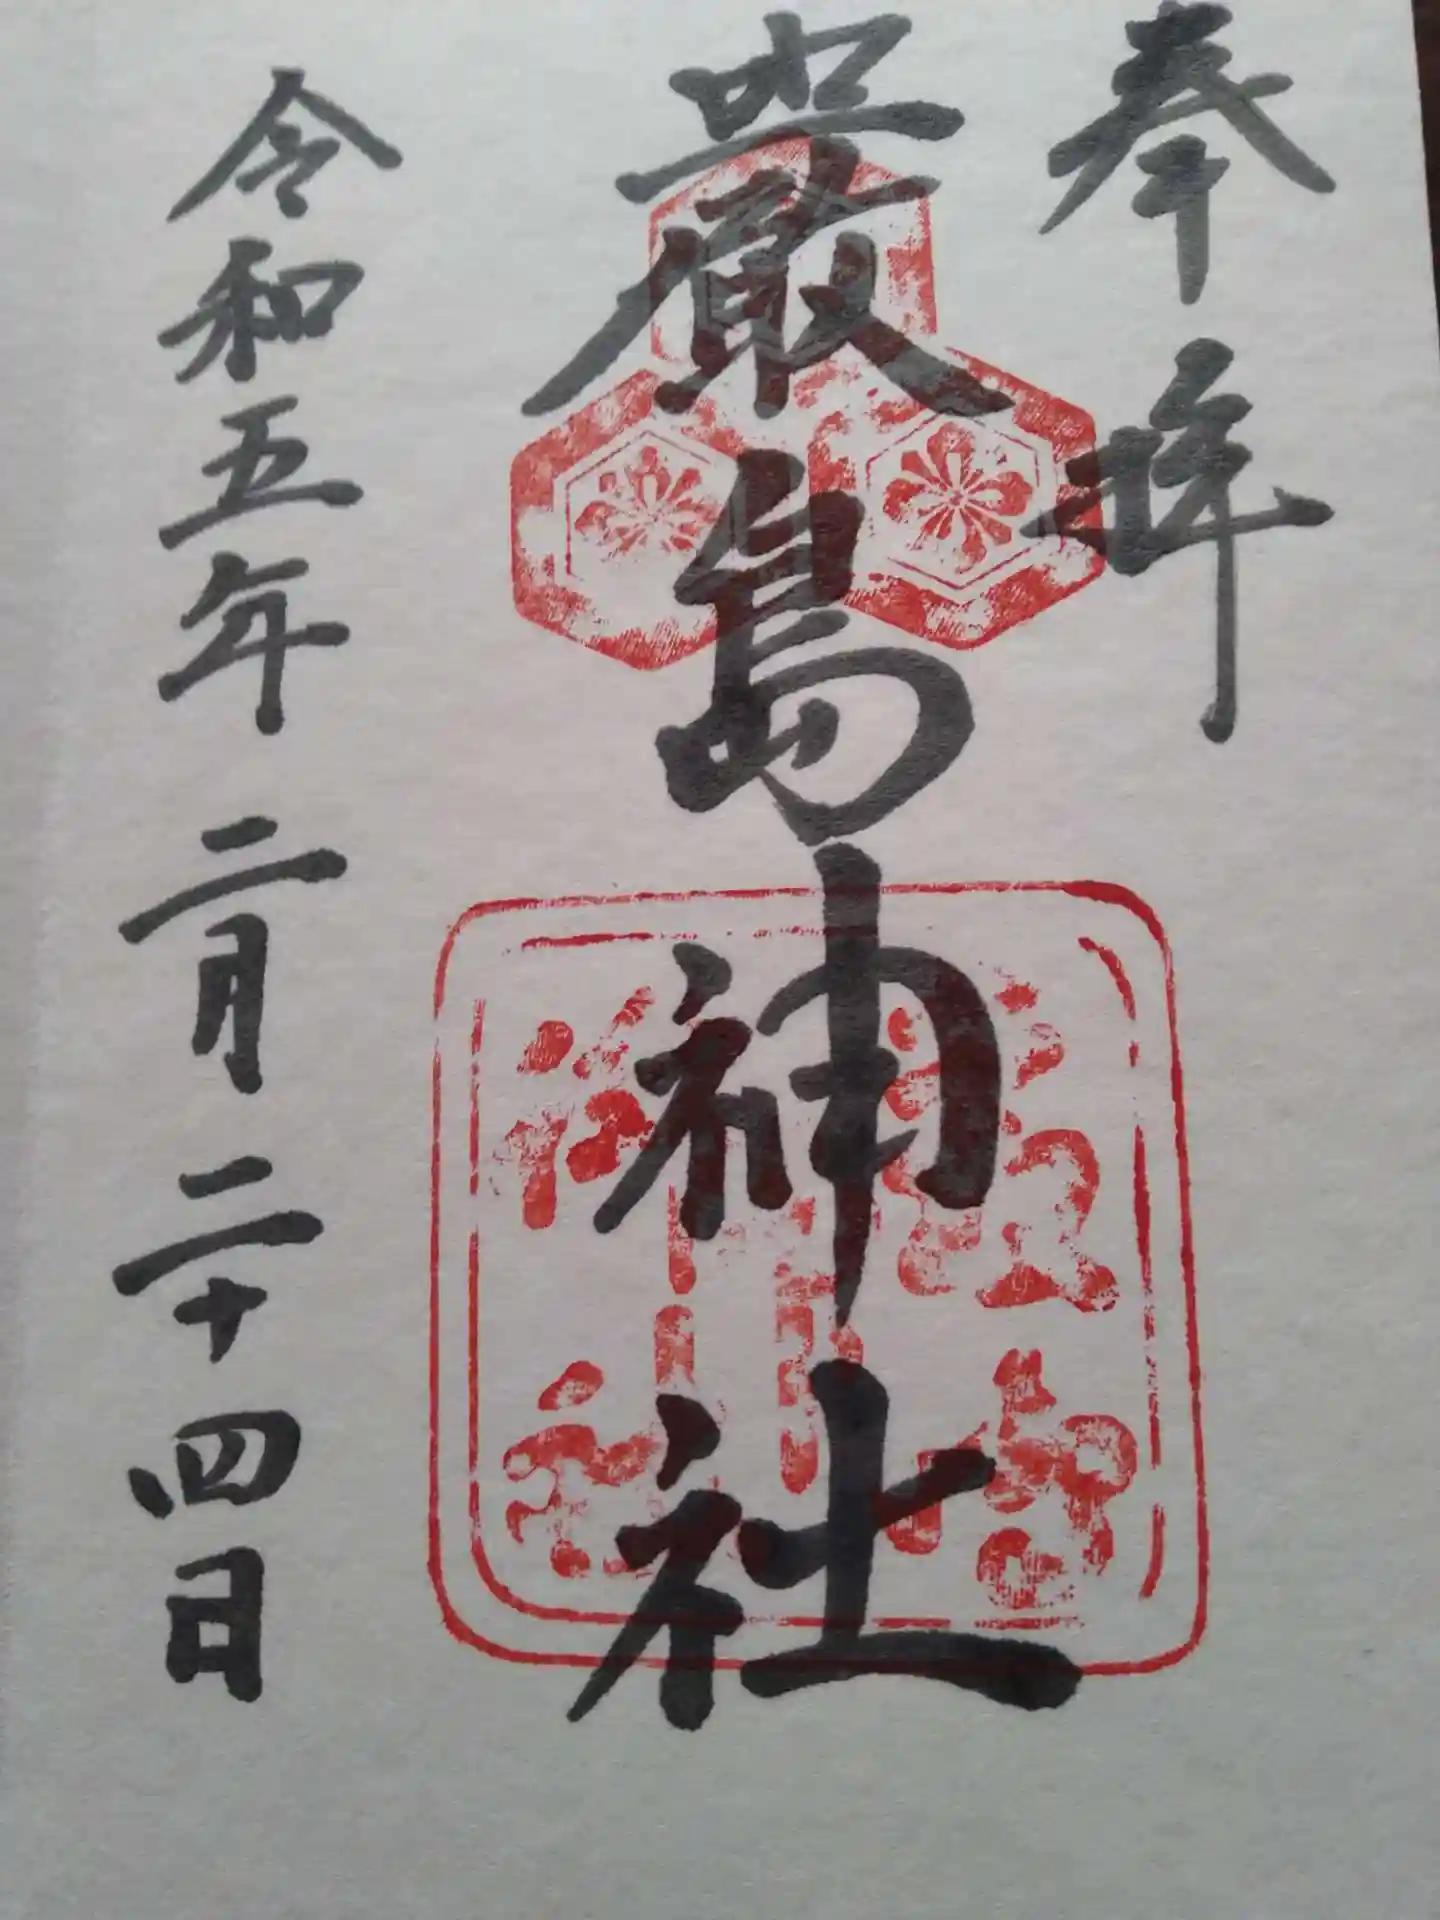 奉拝
嚴島神社
令和五年二月二十四日
嚴島
神社